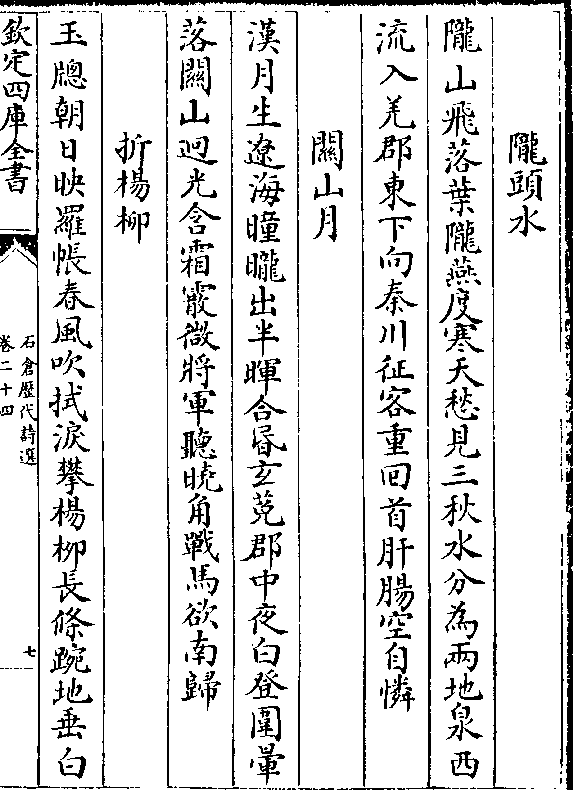 隴頭水
隴山飛落葉隴燕度寒天愁見三秋水分為兩地泉西
流入羌郡東下向秦川征客重回首肝腸空自憐
關山月
漢月生遼海曈曨出半暉合昏玄菟郡中夜白登圍暈
落關山迥光含霜霰微將軍聽曉角戰馬欲南歸
折楊柳
玉牕朝日映羅帳春風吹拭淚攀楊柳長條踠地垂白
欽定四庫全書
石倉歷代詩選
卷二十四
七